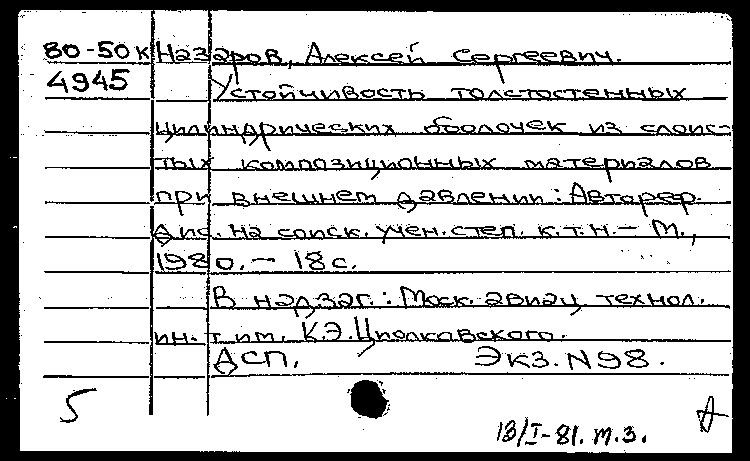 80-50к Назаров, Алексей Сергеевич.
4945 Устойчивость толстостенных
цилиндрических оболочек из слоис-
тых композиционных материалов
при внешнем давлении: Автореф.
Дис. на соиск. учен. степ. к.т.н. - М.,
1980. - 18 с.
В надзаг.: Моск. авиац. технол.
ин-т им. К.Э. Циолковского.
ДСП. Экз. N98.
5
13/I-81. т.з.